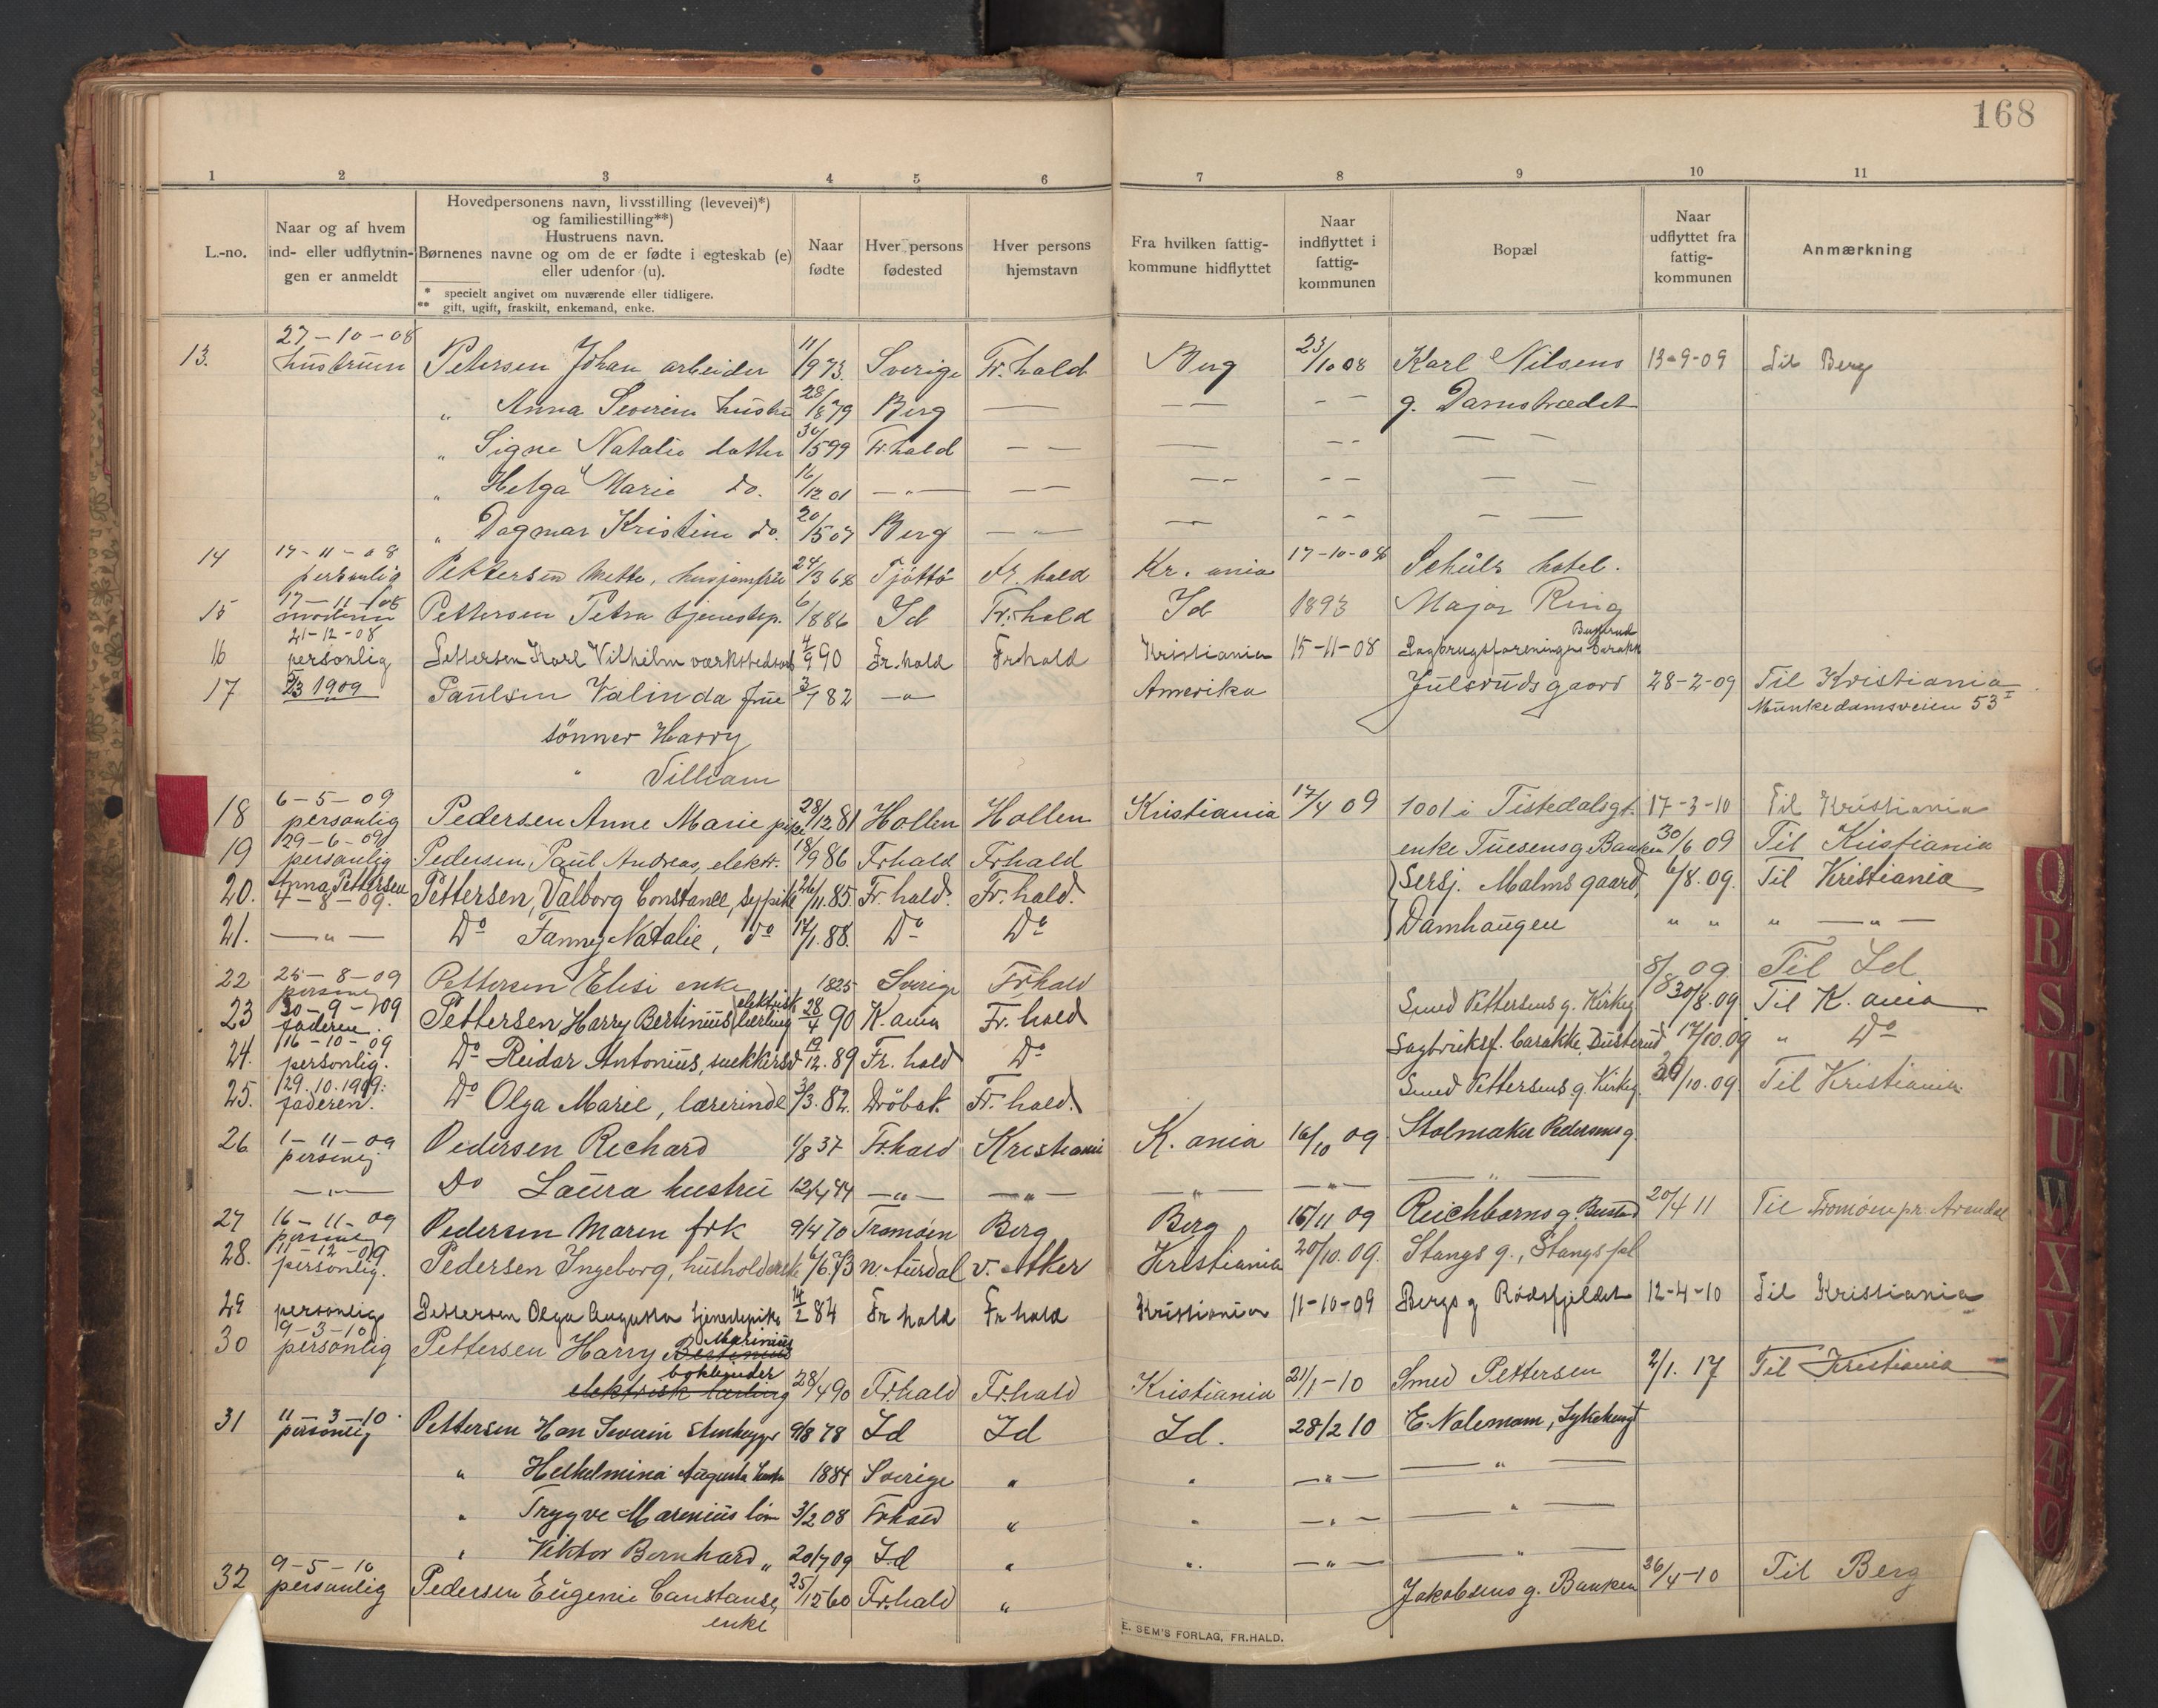 168
1 2 3 4 5 6 7 8 9 10 11
L.-no.
Naar og af hvem
ind- eller udflytnin-
gen er anmeldt
Hovedpersonens navn, livsstilling (levevei)*)
og familiestilling**)
Hustruens navn.
Børnenes navne og om de er fødte i egteskab (e)
eller udenfor (u).
* specielt angivet om nuværende eller tidligere.
** gift, ugift, fraskilt, enkemand, enke.
Naar
fødte
Hver persons
fødested
Hver persons
hjemstavn
Fra hvilken fattig-
kommune hidflyttet
Naar
indflyttet i
fattig-
kommunen
Bopæl
Naar
udflyttet fra
fattig-
kommunen
Anmærkning
27-10-08
13. hustruen Petersen Johan arbeider 11/9 73. Sverige Fr.hald Berg 23/10 08 Karl Nilsens 13-9-09 Til Berg
„ Anna Severine hustru 28/8 79 Berg — — — — — g. Damstrædet
„ Signe Natalie datter 30/5 99 Fr.hald — — — — — — —
„ Helga Marie do. 16/12 01 — „ — — — — — — — — —
„ Dagmar Kristine do. 20/5 07 Berg — „ — — — — —
17-11-08
14 personlig Pettersen Mette, husjomfru 24/3 68 Tjøttø Fr. hald Kr. ania 17-10-08 Schulz hotel.
17-11-08
15 moderen Pettersen Petra tjenestep. 6/8 86 Id Fr.hald Id 1893 Major Ring
21-12-08
16 personlig Pettersen Karl Vilhelm værkstedsarb 4/9 90 Fr.hald Fr.hald Kristiania 15-11-08 Sagbrugsforeningens barakk
17 2/3 1909 Paulsen Valinda frue 3/7 82 — „ Amerika Julsrudsgaard 28-2-09 Til Kristiania
Munkedamsveien 53 I
sønner Harry
„ Villiam
6-5-09
18 personlig Pedersen Anne Marie pike 28/12 81 Hollen Hollen Kristiania 17/4 09 1001 i Tistedalsgt. 17-3-10 Til Kristiania
29-6-09
19 personlig Pedersen, Paul Andreas, elektr. 18/9 86 Frhald Frhald enke Tuesens g Banken 30/6 09 Til Kristiania
Anna Pettersen
20. 4-8-09. Pettersen, Valborg Constance, sypike 26/11.85. Fr.hald. Fr.hald. Sersj. Malms gaard, 6/8.09. Til Kristiania
21. — „ — Do Fanny Natalie, do 17/1.88. Do Do Damhaugen „ „ „ — „ —
22 25-8-09 Pettersen Elisi enke 1825 Sverige Frhald 8/8 09. Til Id
30-9-09
23 faderen. Pettersen Harry Bertinius elektrisk lærling 28/4 90 K.ania Fr.hald Smed Pettersens g. Kirkeg 30/8.09 Til K.ania
16-10-09
24. personlig. Do Reidar Antonius, 19/12.89 Fr.hald Do Sagbruksf. barakke, Busterud 17/10.09 „ Do
29.10.1909.
25. faderen. Do Olga Marie, lærerinde 3/3.82. Drøbak Fr.hald. Smed Pettersens g. Kirkeg. 29/10.09. Til Kristiania.
1-11-09
26 Pedersen Richard 1/8 37 Fr.hald Kristiania K.ania 16/10 09 Stolmaker Pedersens g.
— „ — Do Laura hustru — „ — — „ — — „ — — „ — — „ —
16-11-09
27 Pedersen Maren frk 9/4 70 Tromøen Berg Berg 15/11 09 Reichborns g. 20/4 11 Til Tromøen pr. Arendal
11-12-09
28. personlig. Pedersen Ingeborg, husholderske 6/6.73 N. Aurdal v. Aker Kristiania 20/10.09. Stangs g., Stangs pl
29 personlig Pettersen Olga Augusta tjenestepike 14/2 84 Fr hald Fr hald Kristiania 11-10-09 Bergs g Rødsfjeldet 12-4-10 Til Kristiania
9-3-10
30 personlig Pettersen Harry Bertinius Marinius
elektrisk lærling bokbinder 28/4 90 Fr.hald Fr.hald Kristiania 21/1-10 Smed Pettersen 2/1. 17 Til Kristiania
11-3-10.
31 personlig Pettersen Han Severin stenhugger 9/8 78 Id Id Id. 28/2 10 E. Nolemam,
„ Helhelmina Augusta hustr 1884 Sverige „ „ — „ — — „ —
„ Trygve Marenius søn 3/2 08 Fr.hald „ „ — „ — — „ —
„ Viktor Bernhard „ 20/7 09 Id „ „ — „ — — „ —
9-5-10
32 personlig Pedersen Eugenie Constanse, 25/12 60 Fr.hald „ Jakobsens g. Banken 26/4-10 Til Berg
enke
E. SEM'S FORLAG, FR.HALD.
Q
R
S
T
U
W
X
Y
Z
Æ
Ø